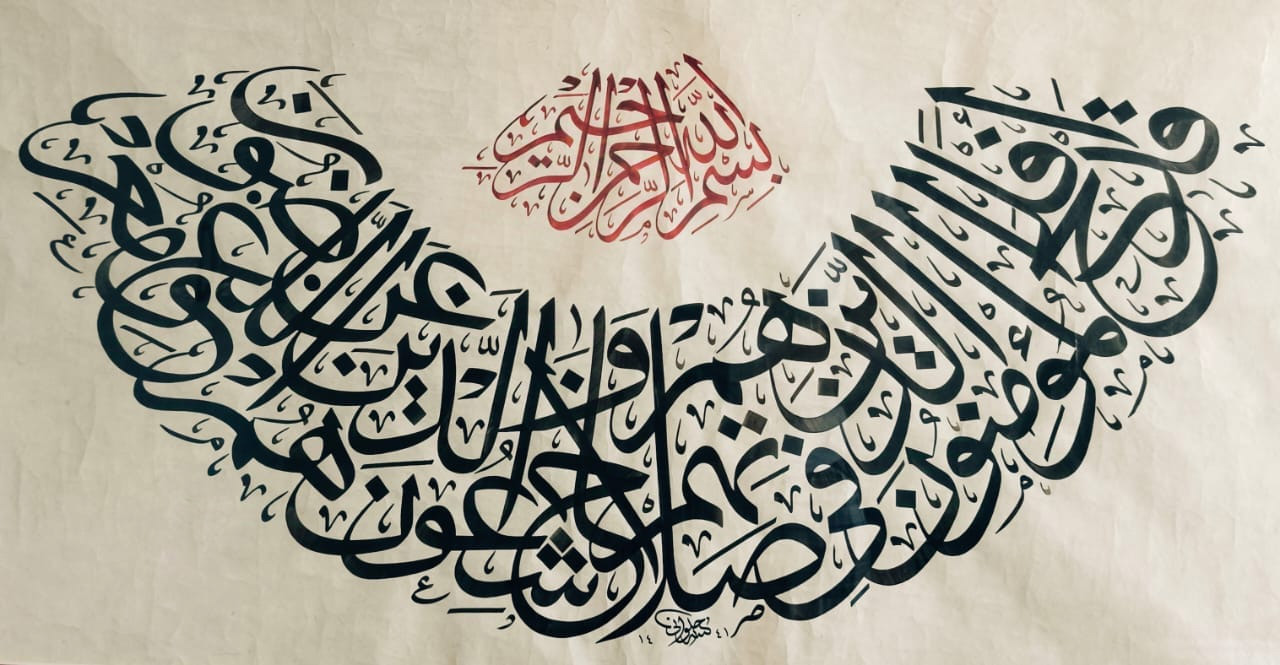 بِسْمِ اللَّهِ الرَّحْمٰنِ الرَّحِيمِ
قَدْ أَفْلَحَ الْمُؤْمِنُونَ الَّذِينَ هُمْ فِي صَلَاتِهِمْ خَاشِعُونَ وَالَّذِينَ هُمْ عَنِ اللَّغْوِ مُعْرِضُونَ
١٤٤١